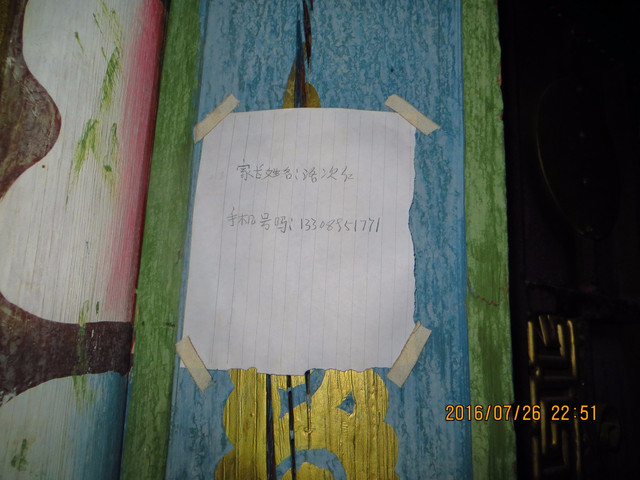 家长姓名:洛次仁
手机号吗:13308951771
2016/07/26 22:51